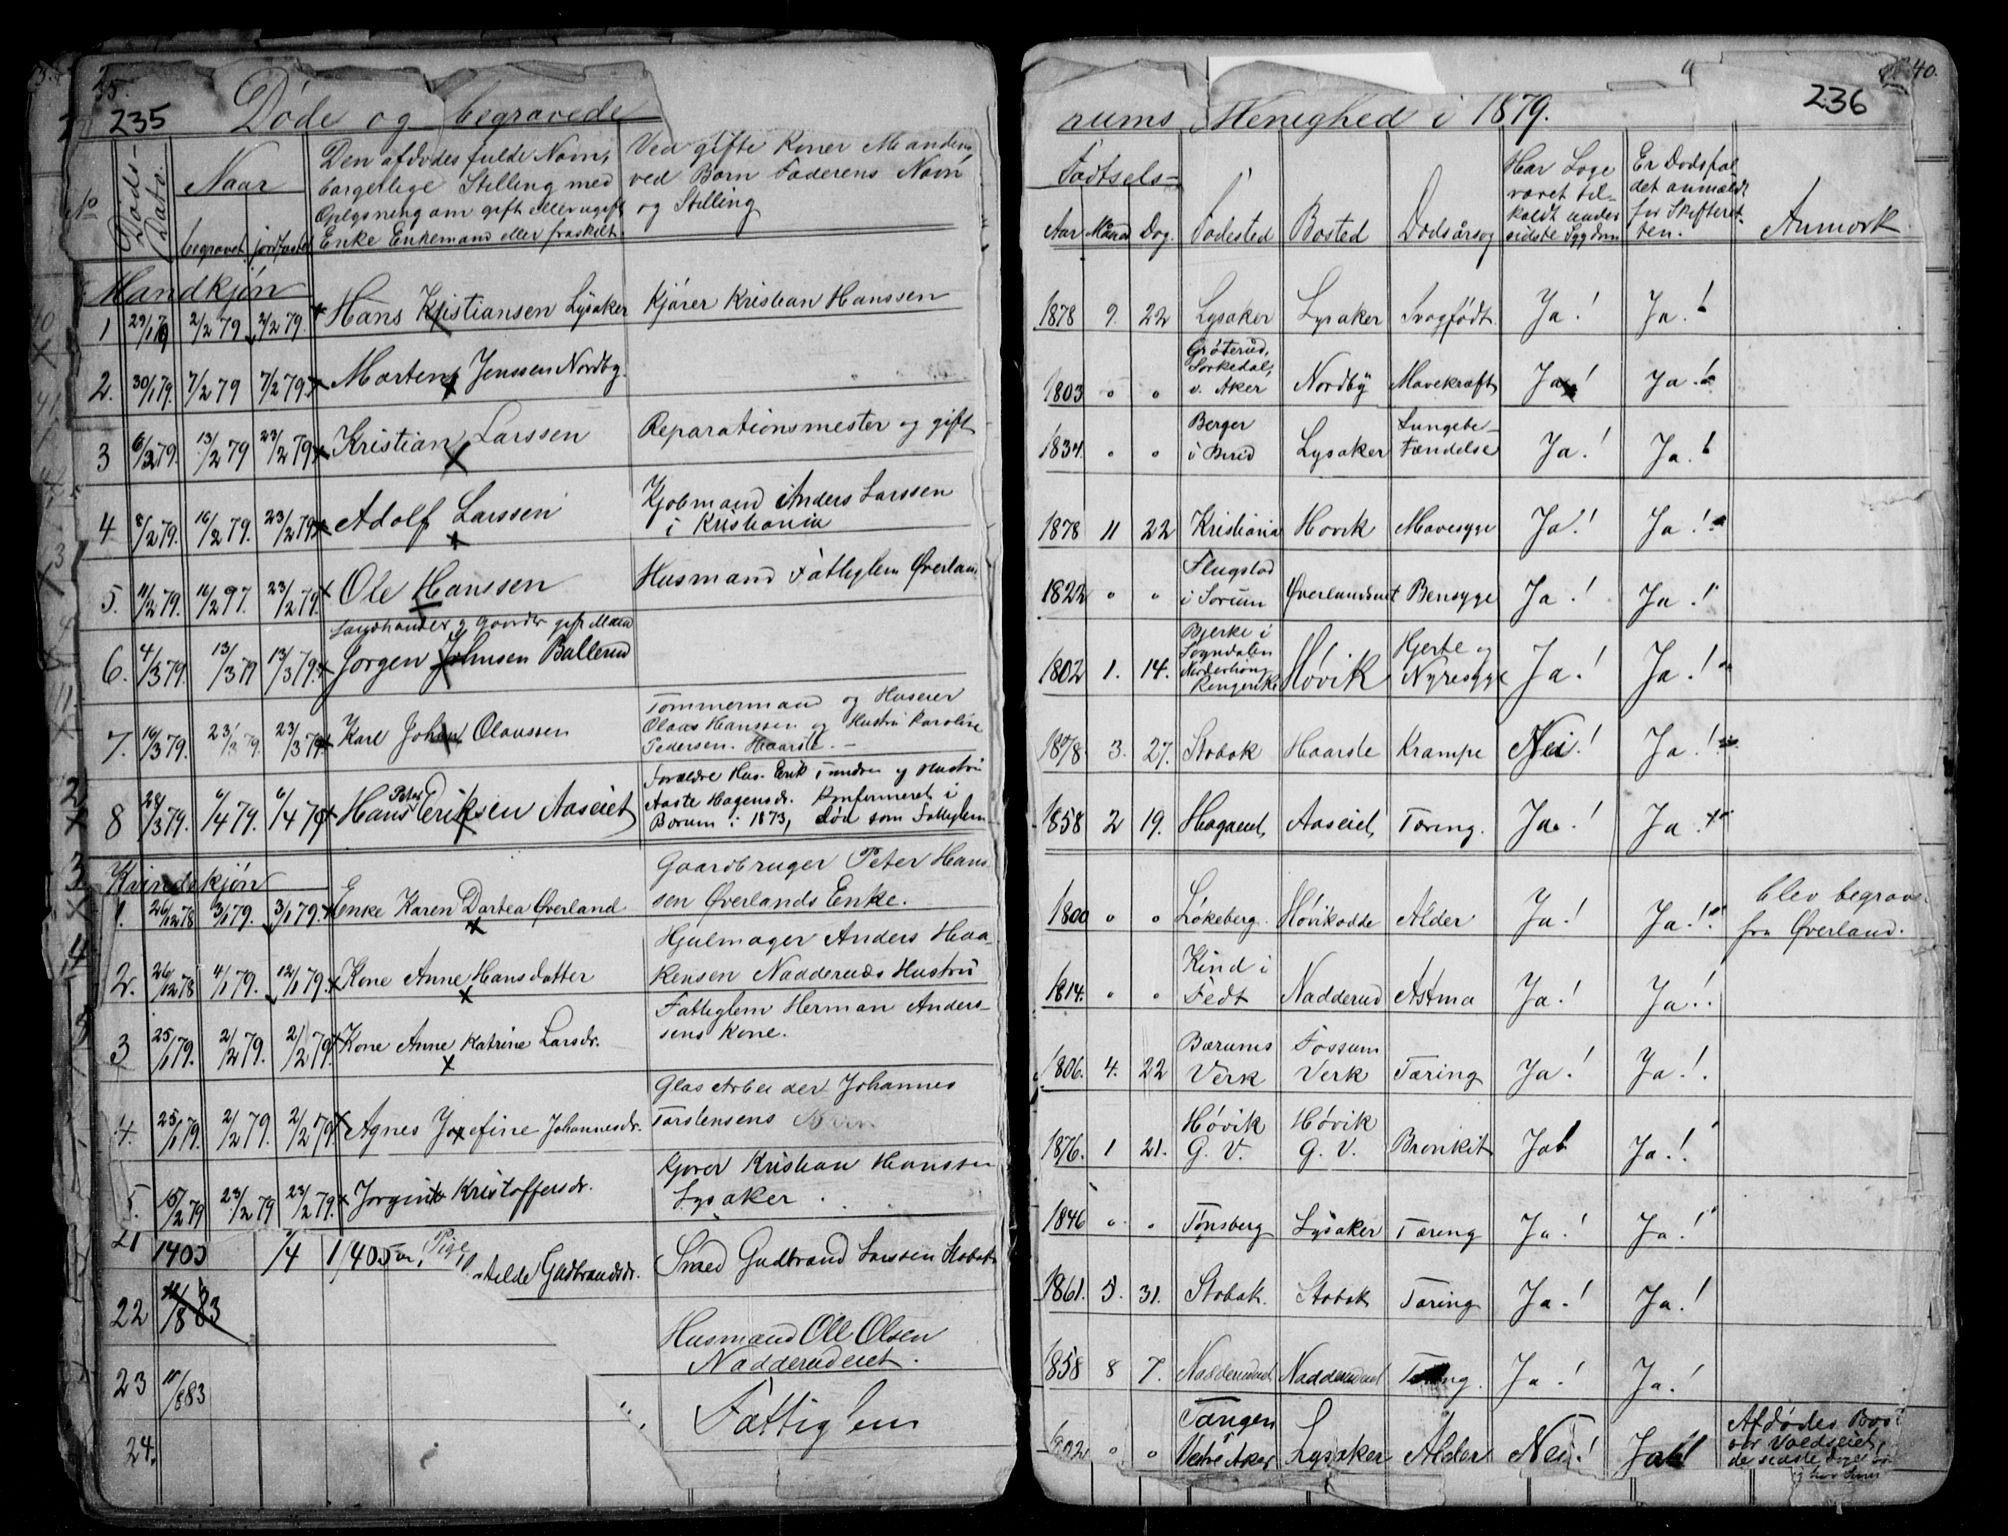 235
Døde og begravede
No
Døds-
Dato.
Naar
begravet
jordfæstet
Den afdødes fulde Navn,
borgerlige Stilling med
Oplysning om gift eller ugift
Enke Enkemand eller fraskilt.
Ved gifte Koner Mandens,
ved Børn Faderens Navn
og Stilling
Mandkjøn
1 29/1 79 2/2 79 2/2 79. Hans Kristiansen Lysaker Kjører Kristian Hanssen
2. 30/1 79. 7/2 79 7/2 79. Morten Jenssen Nordby.
3 6/2 79. 13/2 79 23/2 79. Kristian Larssen Reparationsmester og gift
4 8/2 79. 16/2 79. 23/2 79. Adolf Larssen Kjøbmand Anders Larssen
i Kristiania
5. 11/2 79. 16/2 97. 23/2 79. Ole Hanssen Husmand Fattiglem Øverland
Landhandler g Gaardbr gift Mand
6. 4/3 79. 13/3 79 13/3 79. Jørgen Johnsen Ballerud
7. 19/3 79. 23/3 79. 23/3 79. Karl Johan Olaussen Tømmermand og Huseier
Olaus Hanssen og Hustru Karoline
Pedersen. Haarste. –
8 28/3 79. 6/4 79. 6/4 79 Hans Peter Eriksen Aaseiet Forældre Hus. Erik Tandre og Hustru
Aaste Hagensdr. Konfirmeret i
Bærum i 1873, død som Fattiglem
Kvindekjøn
1. 26/12 78 3/1 79. 3/1 79. Enke Karen Dortea Øverland Gaardbruger Peter Hans
sen Øverlands Enke.
2. 26/12 78 4/1 79. 12/1 79. Kone Anne Hansdatter Hjulmager Anders Haa-
kensen Nadderuds Hustru
3 25/1 79. 2/2 79. 2/2 79 Kone Anne Katrine Larsdr. Fattiglem Herman Anders-
sens Kone.
4. 25/1 79. 2/2 79. 2/2 79 Agnes Josefine Johannesdr. Glas Arbeider Johannes
Torstensens Barn
5. 15/2 79 23/2 79 23/2 79. Jorgine Kristoffersdr. Kjører Kristian Hanssen
Lysaker.
21 Pige Gudbrandsdr. Smed Gudbrand Larssen Stabak
22 83 Husmand Ole Olsen
Nadderudeiet.
23 11/8 83 Fattiglem
24.
236
40.
rums Menighed i 1879.
Fødtsels-
Aar Maaned Dag. Fødested Bosted Dødsårsag
Har Læge
været til-
kaldt under
sidste Sygdom
Er Dødsfal-
det anmældt
for Skifteret-
ten.
Anmærk
1878 9. 22 Lysaker Lysaker Svagfødt. Ja! Ja!
1803 " " Grøterud,
Sørkedal,
v. Aker Nordby Mavekræft Ja! Ja!
1834. " " Berger
i Bærid Lysaker Lungebe-
tændelse Ja! Ja!
1878 11 22 Kristiania Høvik Mavesyge Ja! Ja!
1822 " " Flugstad
i Sørum Øverlandseiet Bensyge Ja! Ja!
1802 1. 14. Bjerke i
Sogndalen
Norderhóug
Ringerike Høvik Hjerte og
Nyresyge Ja! Ja!
1878 3. 27. Stabak Haarste Krampe Nei! Ja!
1858 2 19. Hagaeiet, Aaseiet, Tæring. Ja! Ja.
1800 " " Løkeberg. Høvikodde Alder Ja! Ja! blev begrav.
fra Øverland.
1814. " " Kind i
Fedt Nadderud Astma Ja! Ja!
1806. 4. 22 Bærums
Verk Fossum
Verk Tæring Ja! Ja!
1876. 1 21. Høvik
G. V. Høvik
G. V. Bronkit Ja! Ja!
1846 " " Tønsberg Lysaker Tæring Ja! Ja!
1861. 5. 31. Stabak. Stabak Tæring Ja! Ja!
1858 8 7. Nadderudeiet Nadderudeiet Tæring. Ja! Ja!
1802 " " Tangen
Vestre Aker Lysaker Alder Nei! Ja! Afdødes
var Voldseiet,
de sidste